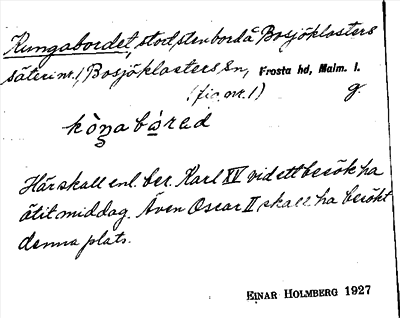 Kungabordet, stod stenbord å Bosjöklosters
säteri nr. 1, Bosjöklosters sn, Frosta hd, Malm. l.
(fig. nr. 1) g.
Här skall enl. ber. Karl XV vid ett besök ha
ätit middag. Även Oscar II skall ha besökt
denna plats.
EINAR HOLMBERG 1927